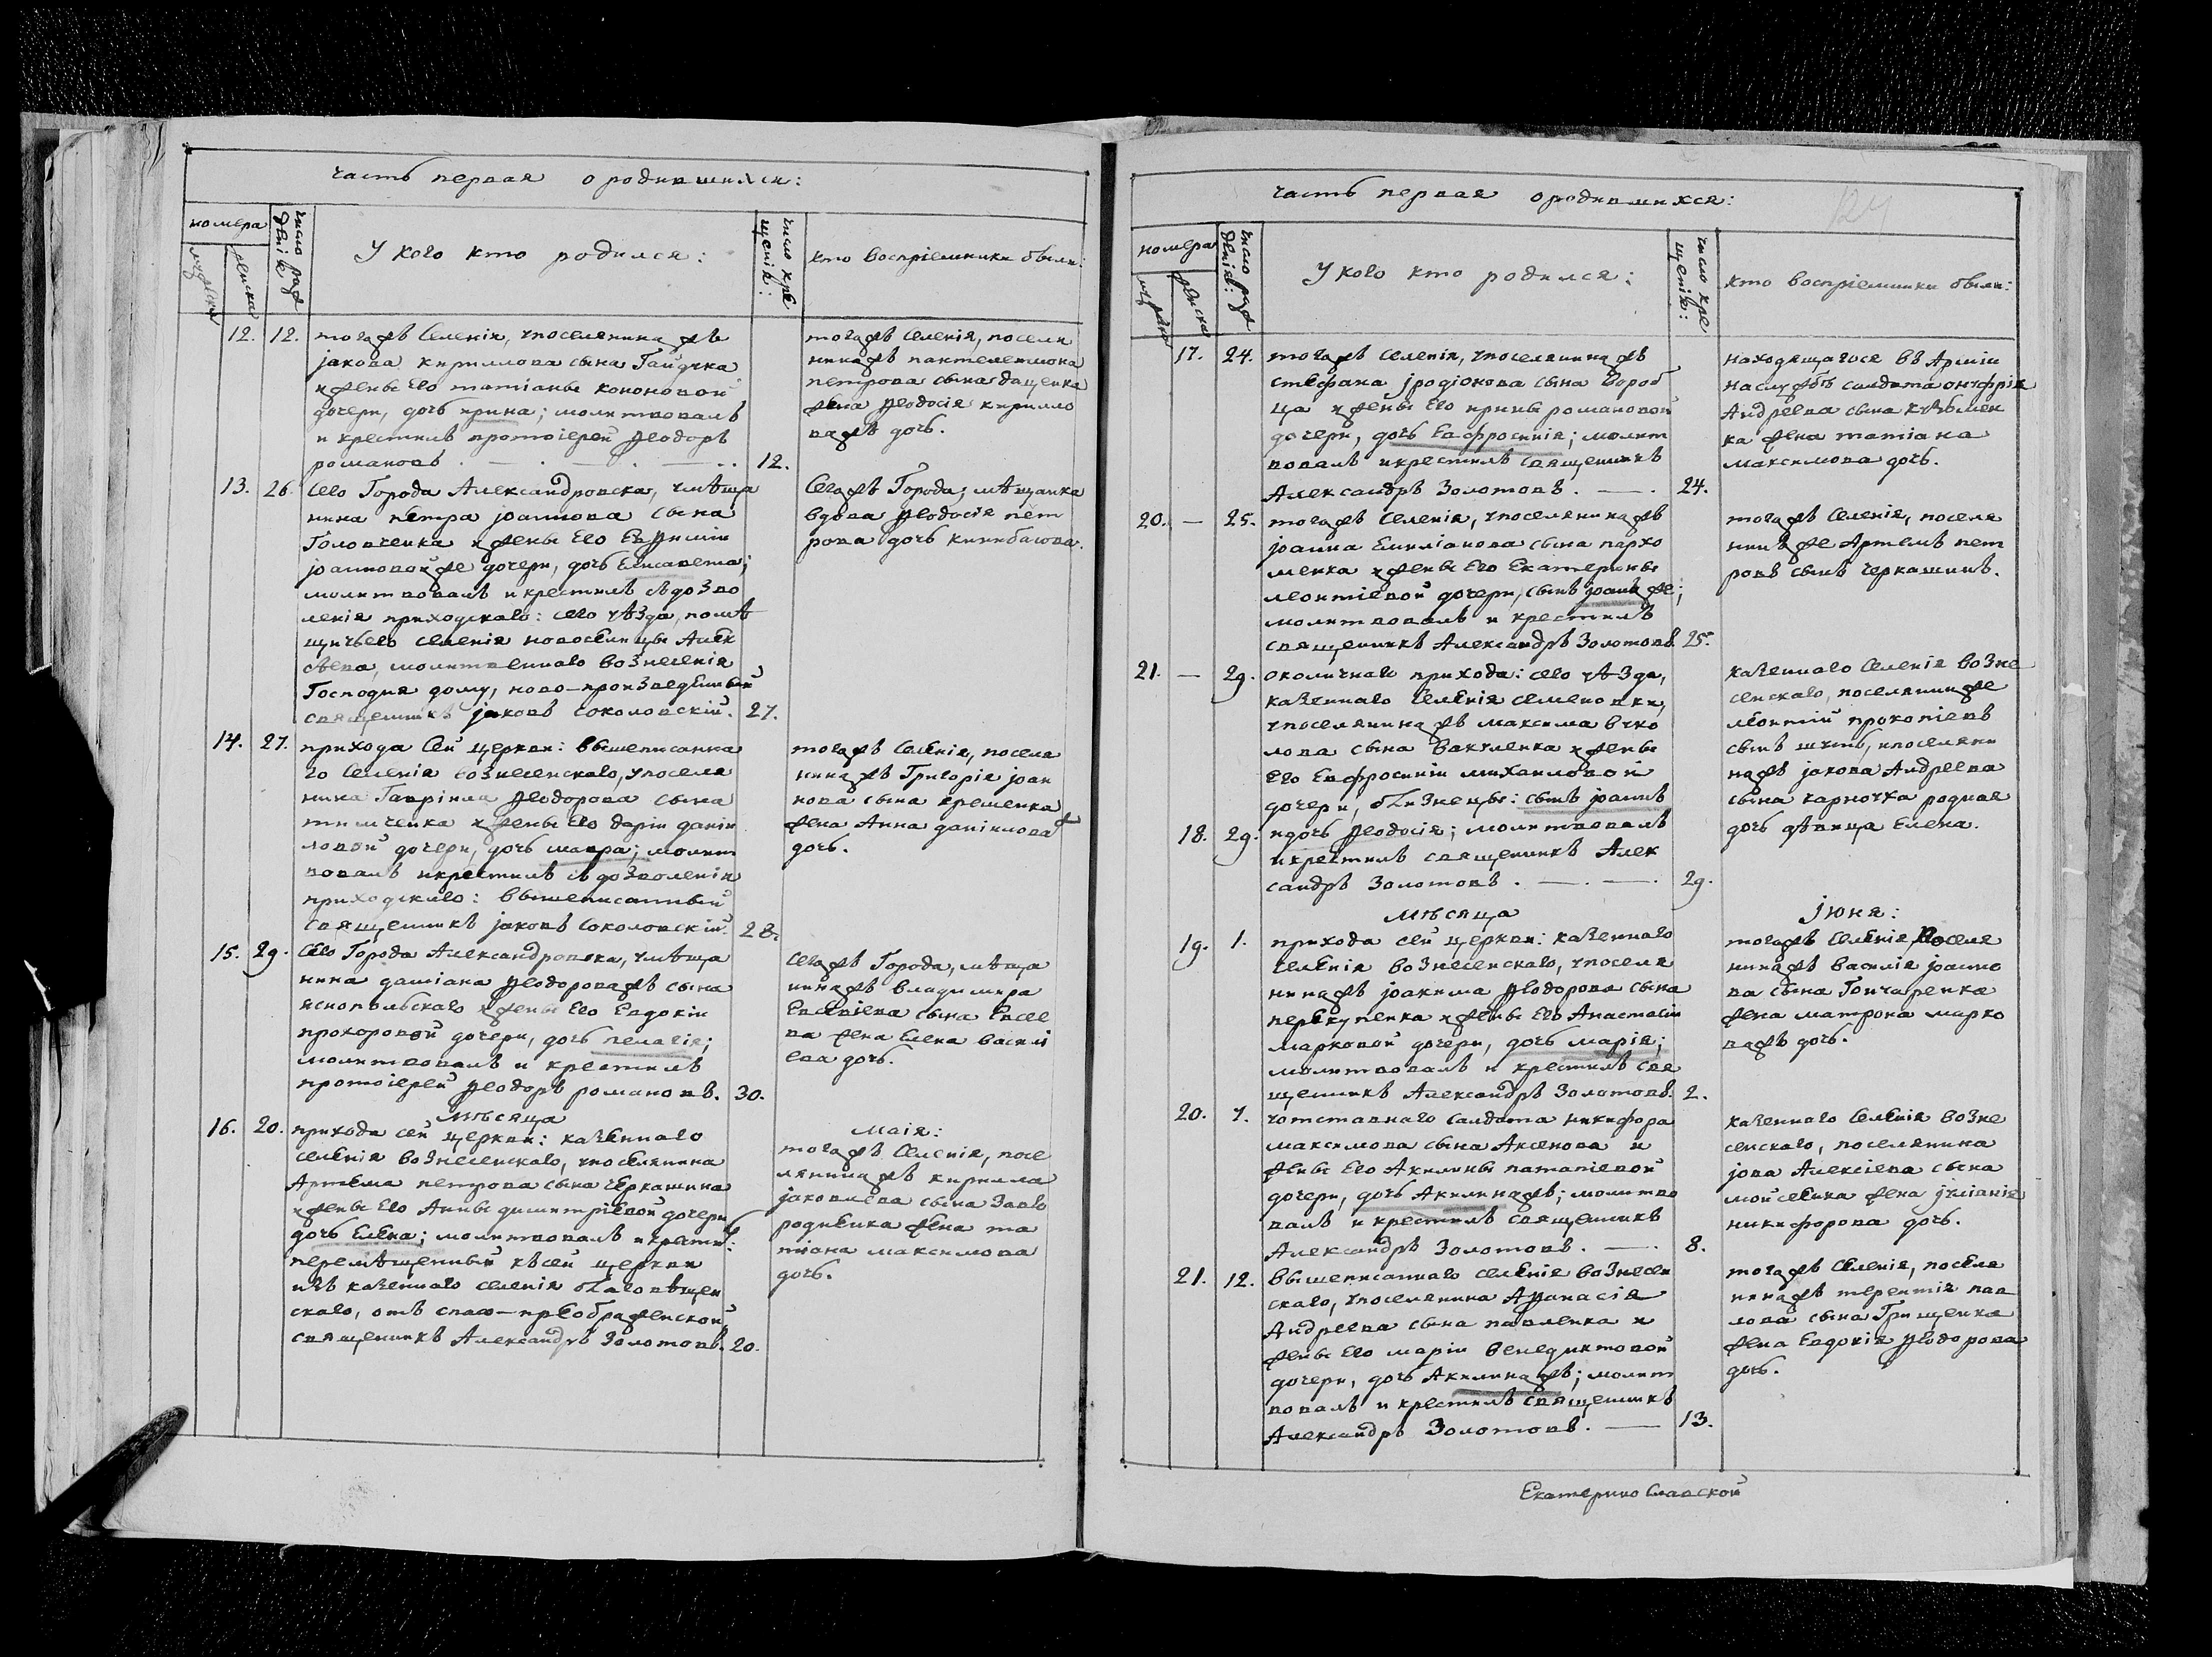 часть первая о родившихся:
номера
мужеска
женска
число рож
денія:
У кого кто родился:
число кре
щенія:
кто воспріемники были:
12. 12. тогожъ Селенія, упоселянинажъ
іакова кириллова сына Гайдука
ижены его татіаны кононовой
дочери, дочь ирина; молитвовалъ
и крестилъ протоіерей Ѳеодоръ
романовъ . — . — . — .. 12.
тогожъ селенія, поселя
нинажъ пантелеимона
петрова сына даценка
жена Ѳеодосія кирилло
важъ дочь.
13. 26. Сего Города Александровска, умѣща
нина петра іоаннова сына
Головченка ижены Его Евѳиміи
іоанновойже дочери, дочь Елисавета;
молитвовалъ икрестилъ съдозво
ленія приходскаго: сего уѣзда, помѣ
щичьего селенія новоселицы Алек
сѣева, молитвеннаго вознесенія
Господня дому, ново-произведенный
священникъ іаковъ соколовскій. 27.
Сегожъ Города, мѣщанка
вдова Ѳеодосія пет
рова дочь кинибасова.
14. 27. прихода Сей церкви: вышеписанна
го Селенія вознесенскаго, упоселя
нина Гавріила Ѳеодорова сына
тимченка ижены Его даріи даніи
ловой дочери, дочь мавра; молит
вовалъ икрестилъ съ дозволенія
приходскаго: вышеписанный
священникъ іаковъ Соколовскій. 28.
тогожъ Селенія, поселя
нинажъ Григорія іоан
нова сына кременка
жена Анна даніилова
дочь.
15. 29. Сего Города Александровска, умѣща
нина даміана Ѳеодороважъ сына
яснопольскаго ижены Его Евдокіи
прохоровой дочери, дочь пелагія;
молитвовалъ и крестилъ
протоіерей Ѳеодоръ романовъ. 30.
Сегожъ Города, мѣща
нинажъ владимира
Евсевіева сына Евсее
ва жена Елена василі
ева дочь.
мѣсяца
маія:
16. 20. прихода сей церкви: казеннаго
селенія вознесенскаго, упоселянина
Артема петрова сына черкашина
ижены Его Анны димитріевой дочери
дочь Елена; молитвовалъ икрестилъ:
перемѣщенный късей церкви
изъ казеннаго селенія благовѣщен
скаго, отъ спасо-преображенской,
священникъ Александръ Золотовъ. 20.
тогожъ Селенія, посе
лянинажъ кирилла
іаковлева сына Заво
родненка жена та
тіана максимова
дочь.
часть первая о родившихся:
124
номера
мужеска
женска
число рож
денія:
У кого кто родился:
число кре
щенія:
кто воспріемники были:
17. 24. тогожъ селенія, упоселянинажъ
стефана іродіонова сына Вороб
ца ижены Его ирины романовой
дочери, дочь Евфросинія; молит
вовалъ икрестилъ священникъ
Александръ Золотовъ. — . 24.
находящагося въ Арміи
наслужбѣ солдата онуфрія
Андреева сына кузьмен
ка жена татіана
максимова дочь.
20. — 25. тогожъ селенія, упоселянинажъ
іоанна Емиліанова сына пархо
менка ижены Его Екатерины
леонтіевой дочери, сынъ іоаннже;
молитвовалъ и крестилъ
священникъ Александръ Золотовъ. 25.
тогожъ селенія, поселя
нинъже Артемъ пет
ровъ сынъ черкашинъ.
21. — 29. околичнаго прихода: сего уѣзда,
казеннаго селенія семеновки,
упоселянинажъ максима вуко
лова сына вакуленка ижены
Его Евфросиніи михаиловой
дочери, близнецы: сынъ іоаннъ
18. 29. идочь Ѳеодосія; молитвовалъ
икрестилъ священникъ Алек
сандръ Золотовъ . — . — . 29.
казеннаго Селенія возне
сенскаго, поселянинже
леонтій прокопіевъ
сынъ шутъ, ипоселяни
нажъ іакова Андреева
сына карночка родная
дочь дѣвица Елена.
мѣсяца
іюня:
19. 1. прихода сей церкви: казеннаго
селенія вознесенскаго, упоселя
нинажъ іоакима Ѳеодорова сына
перекупенка ижены Его Анастасіи
марковой дочери, дочь марія;
молитвовалъ и крестилъ свя
щенникъ Александръ Золотовъ. 2.
тогожъ Селенія, поселя
нинажъ василія іоанно
ва сына Гончаренка
жена матрона марко
важъ дочь.
20. 7. уотставнаго солдата никифора
максимова сына Аксенова и
жены Его Акилины патапіевой
дочери, дочь Акилинажъ; молитво
валъ и крестилъ священникъ
Александръ Золотовъ. — . 8.
казеннаго Селенія возне
сенскаго, поселянина
іова Алексіева сына
мойсеенка жена іуліанія
никифорова дочь.
21. 12. вышеписаннаго селенія вознесен
скаго, упоселянина Аѳанасія
Андреева сына павленка и
жены Его маріи венедиктовой
дочери, дочь Акилинажъ; молит
вовалъ и крестилъ священникъ
Александръ Золотовъ. — 13.
тогожъ селенія, поселя
нинажъ терентія пав
лова сына Грищенка
жена Евдокія Ѳеодорова
дочь.
Екатеринославской